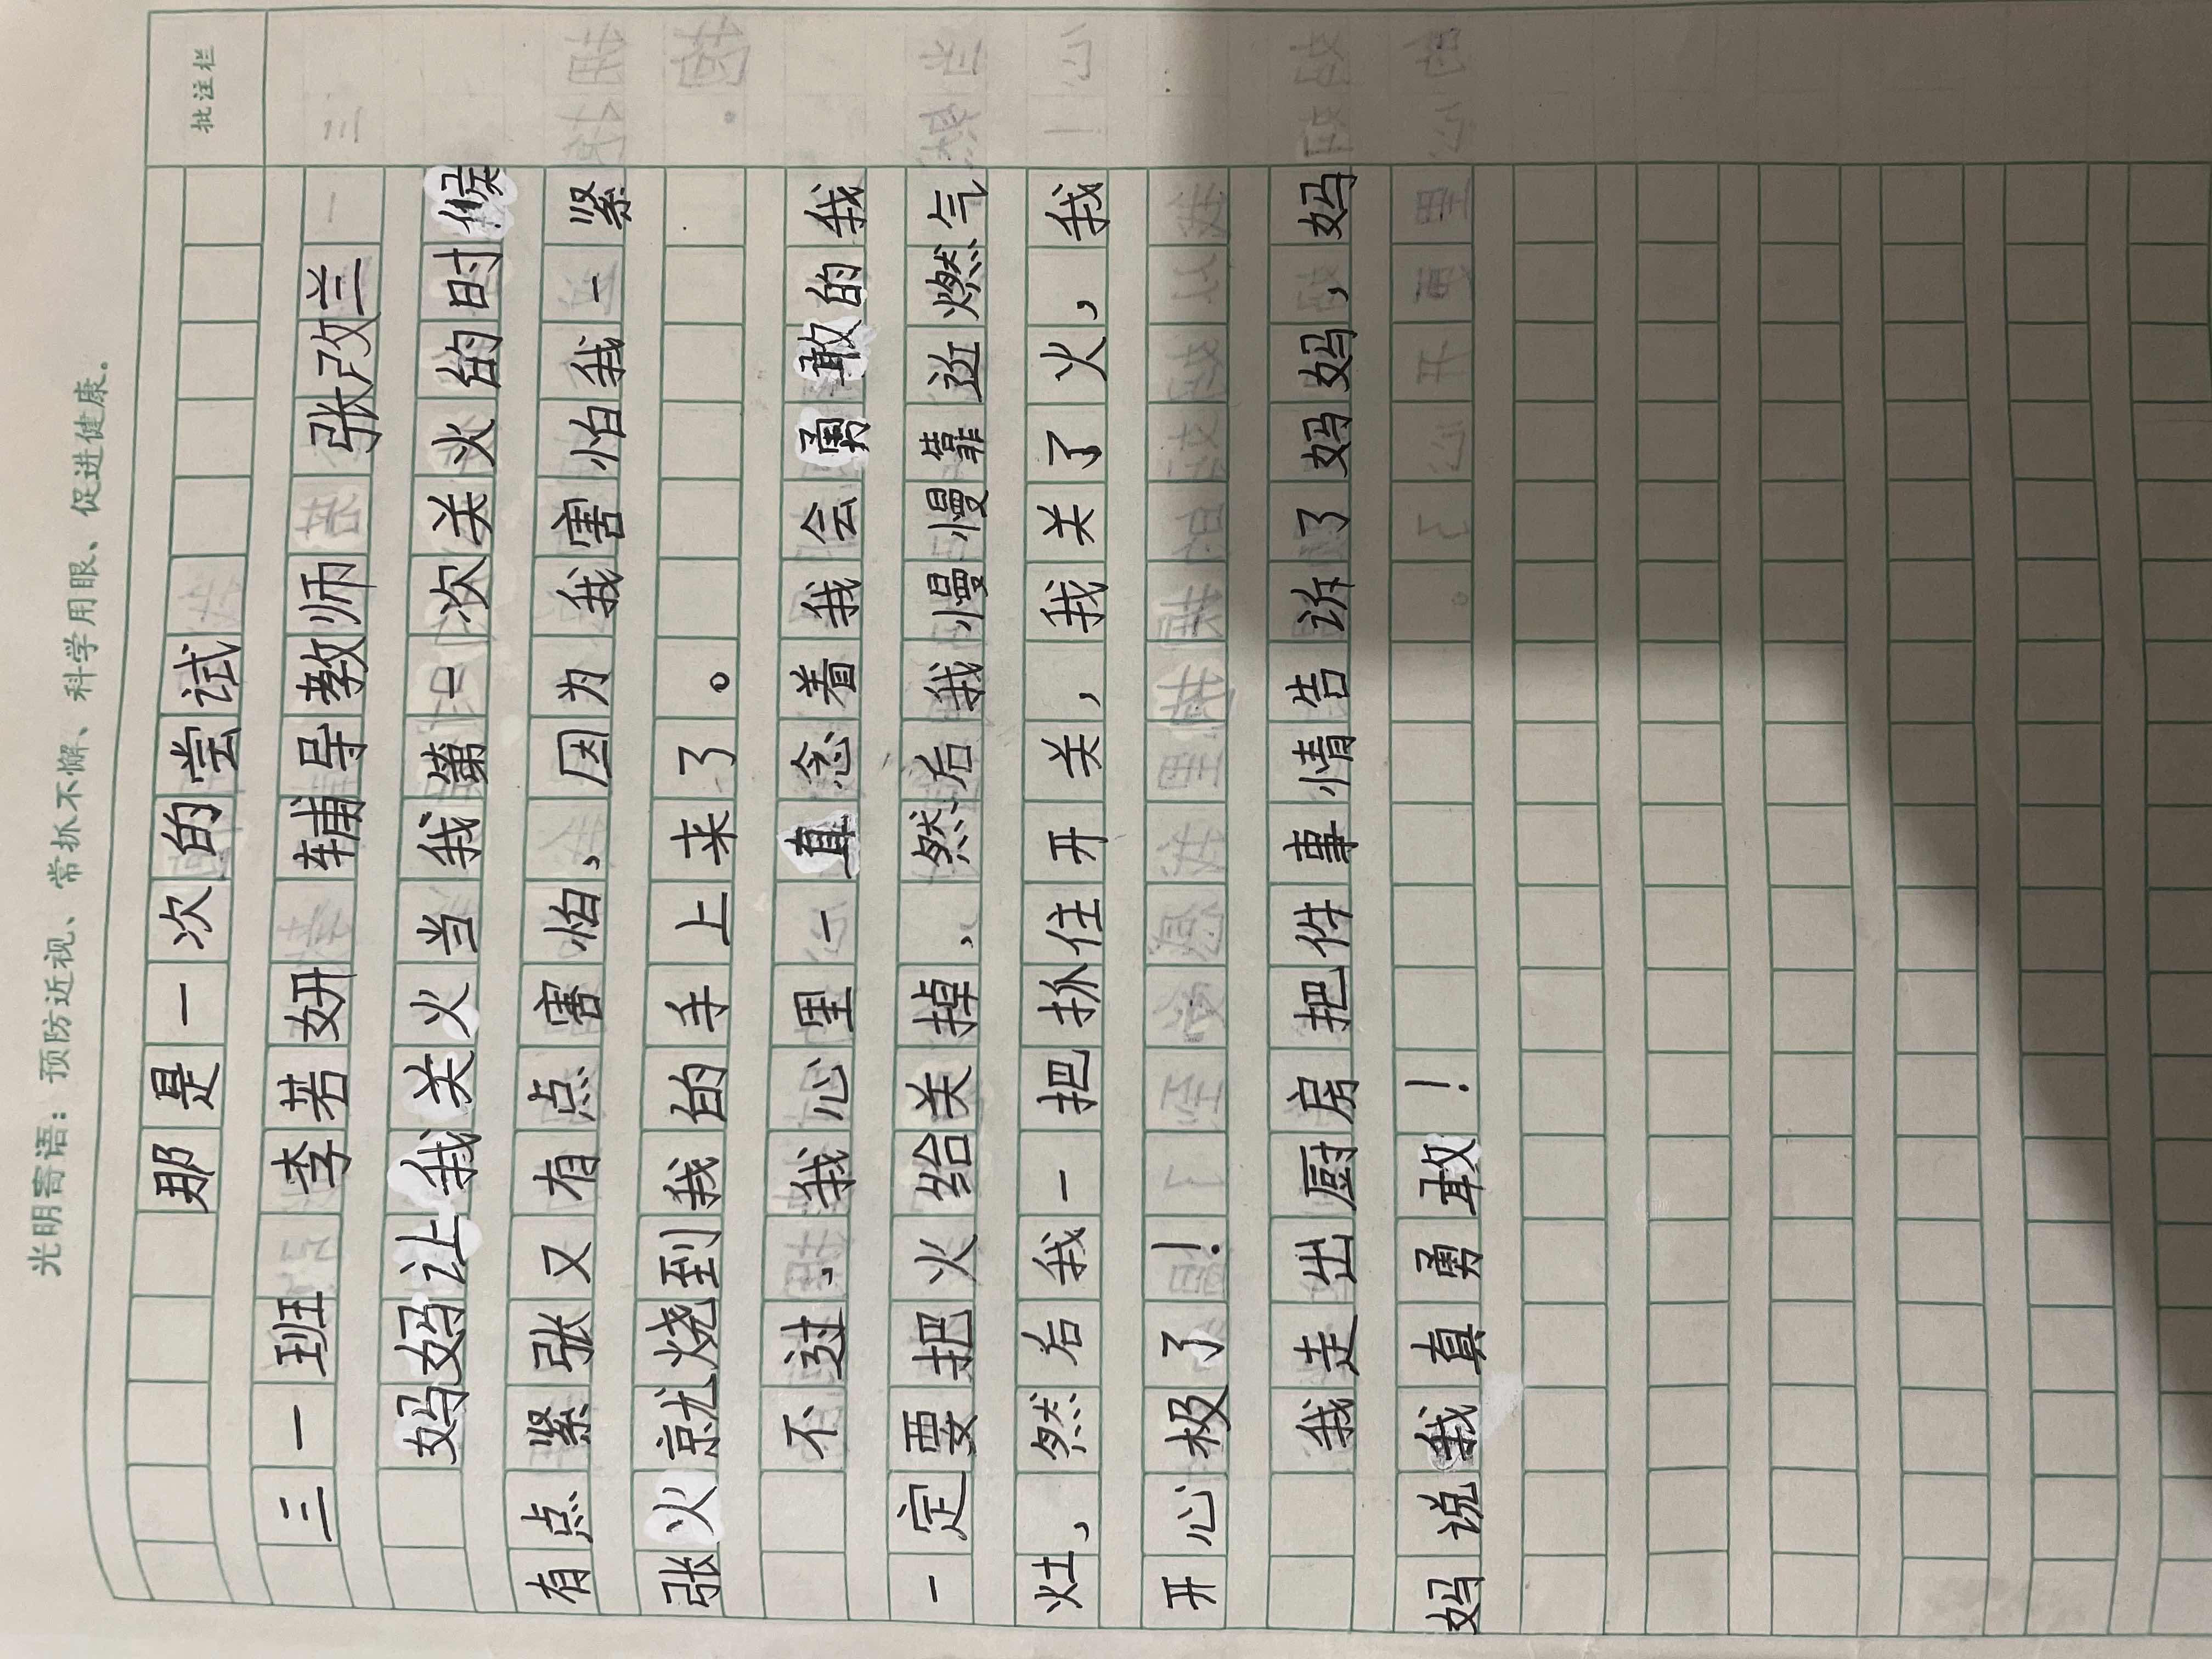 光明寄语：预防近视、常抓不懈、科学用眼、促进健康。
批注栏
那是一次的尝试
三一班 李若妍 辅导教师 张改兰
妈妈让我关火当我第一次关火的时候
有点紧张又有点害怕，因为我害怕我一紧
张火就烧到我的手上来了。
不过，我心里一直念着我会勇敢的我
一定要把火给关掉，然后我慢慢靠近燃气
灶，然后我一把抓住开关，我关了火，我
开心极了！
我走出厨房把件事情告诉了妈妈，妈
妈说我真勇敢！